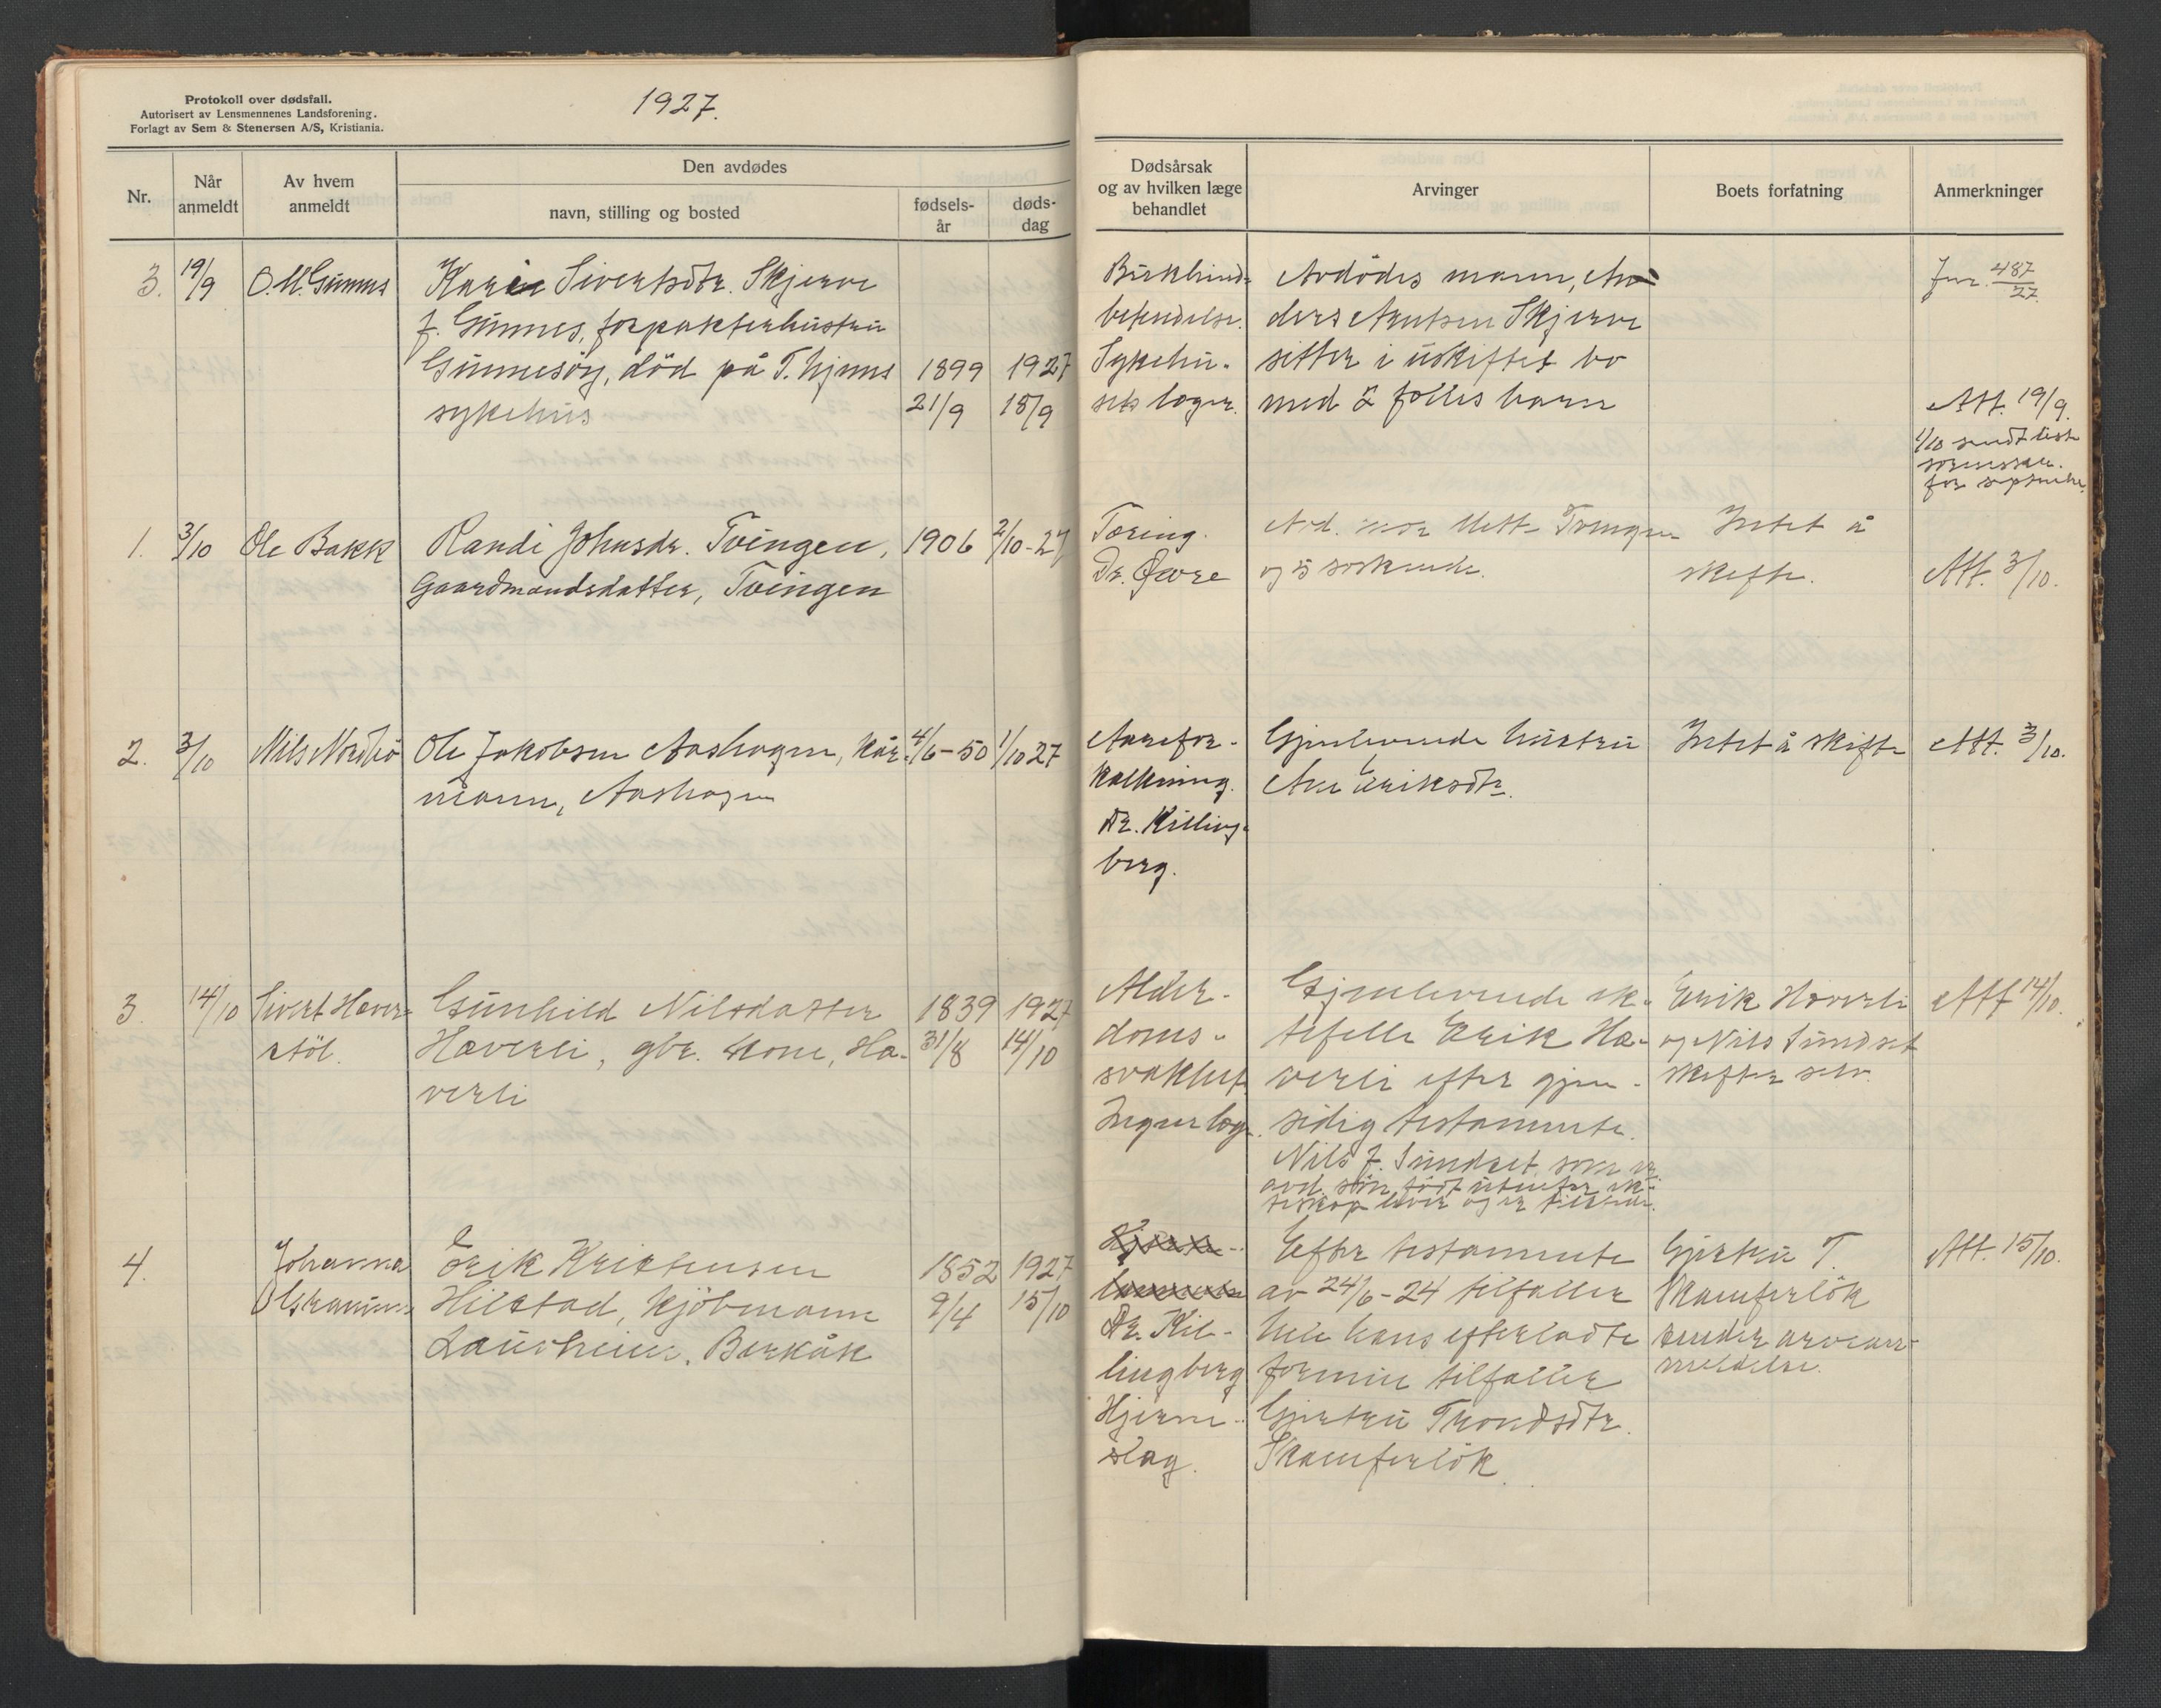 Protokoll over dødsfall.
Autorisert av Lensmennenes Landsforening.
Forlagt av Sem & Stenersen A/S, Kristiania.
1927.
Nr.
Når
anmeldt
Av hvem
anmeldt
Den avdødes
navn, stilling og bosted
fødsels-
år
døds-
dag
Dødsårsak
og av hvilken læge
behandlet
Arvinger
Boets forfatning
Anmerkninger
3. 19/9 O. M. Gunnes
Karen Sivertsdtr. Skjerve
f. Gunnes, forpakterhustru
Gunnesöy, död på T.hjems
sykehus
1899
21/9
1927
18/9
betendelse.
Sykehu-
sets læger.
Avdödes mann, An-
ders Arntsen Skjerve
sitter i uskiftet bo
med 2 felles barn
Jnr. 487/27.
Att. 19/9.
1/10 sendt liste
for september
1. 3/10 Ole Bakk
Randi Johnsdr. Tvingen,
Gaardmandsdatter, Tvingen
1906
2/10-27
Tæring.
Dr.
Avd. mor Tvingen
og 5 søskende.
Intet å
skifte.
Att. 3/10.
2. 3/10 Nils Nordbö
Ole Jakobsen Aashagen, kår-
mann, Aashagen
4/6-50
1/10 27
Aarefor-
kalkning.
Dr. Killing-
berg.
Gjenlevende hustru
Ane Eriksdtr.
Intet å skifte
Att. 3/10.
3. 14/10 Sivert Hæver-
stöl.
Gunhild Nilsdatter
Hæverli, gbr. kone, Hæ-
verli
1839
31/8
1927
14/10
Alder-
doms-
svakhet.
Ingen læge.
Gjenlevende ek-
tefelle Erik Hæ-
verli efter gjen-
sidig testamente.
Nils J. Sundset, som er
avd. sön, födt utenfor ek-
teskap lever og er
Erik Hæverli
og Nils Sundset
skifter selv.
Att 14/10.
4.
Johanna
Erik Kristensen
Hilstad, kjöbmann
Berkåk
1852
9/4
1927
15/10
Dr. Kil-
lingberg
Hjerne-
slag.
Efter testamente
av 24/6-24 tilfaller
hele hans efterladte
formue tilfaller
Gjertru Trondsdtr.
Skamferlök
Gjertru T.
Skamferlök
sender arvean-
meldelse.
Att. 15/10.